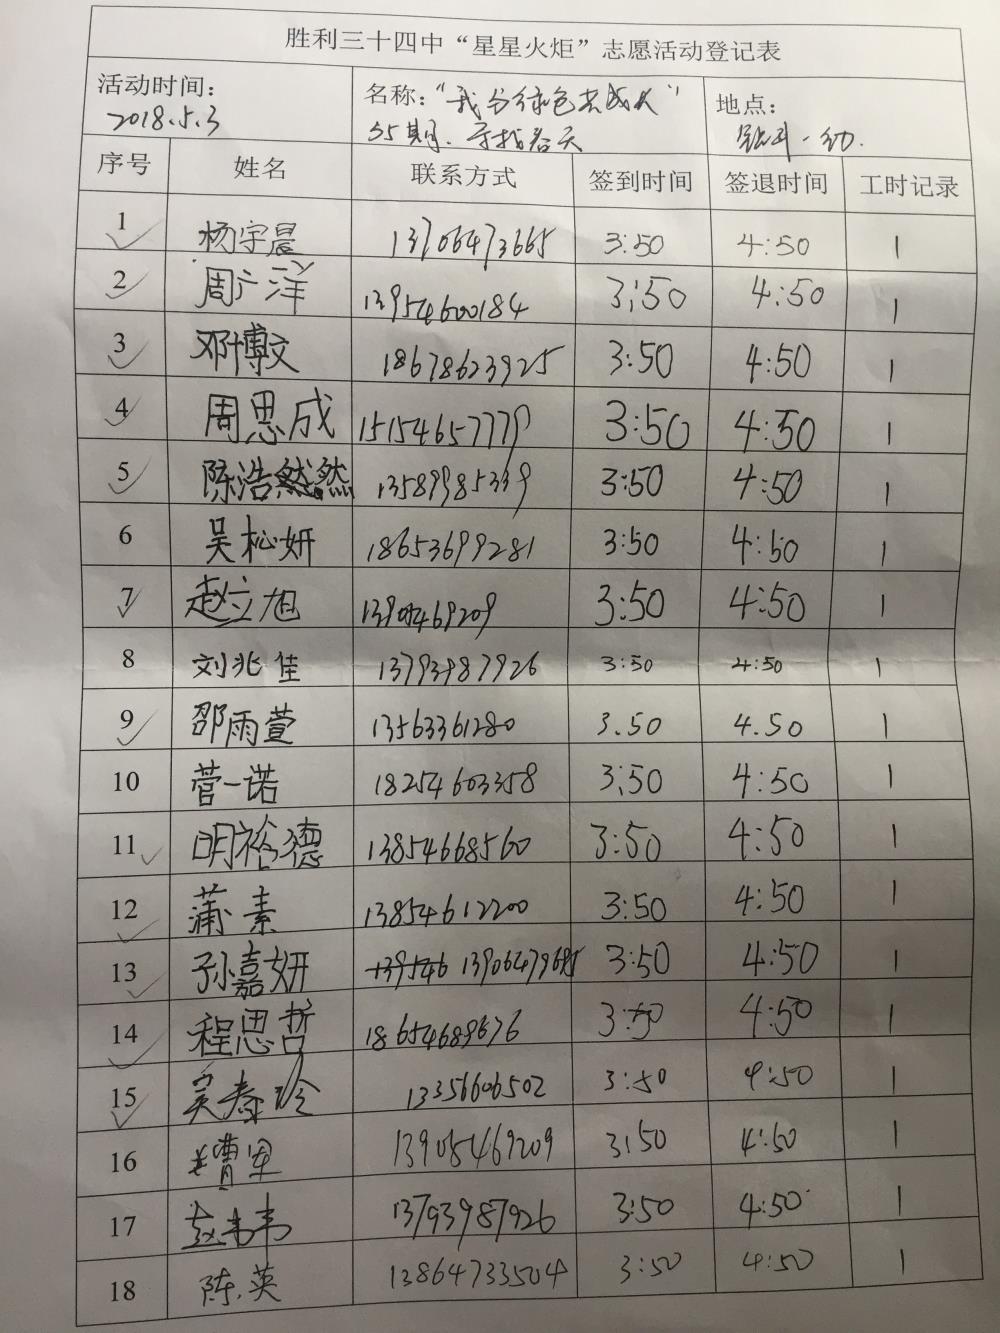 胜利三十四中“星星火炬”志愿活动登记表
活动时间： 名称：“我 绿色 成长” 地点：
2018.5.3 35期、寻找春天 ·幼.
序号 姓名 联系方式 签到时间 签退时间 工时记录
1 杨宇晨 13706473665 3:50 4:50 1
2 周广洋 13954600184 3:50 4:50 1
3 邓博文 18678623925 3:50 4:50 1
4 周思成 15154657779 3:50 4:50 1
5 陈浩然 13589985339 3:50 4:50 1
6 吴松妍 18653699281 3:50 4:50 1
7 赵立旭 3:50 4:50 1
8 刘兆佳 13793987926 3:50 4:50 1
9 邵雨萱 13563361280 3.50 4.50 1
10 菅一诺 18254603358 3:50 4:50 1
11 明裕德 13854668560 3:50 4:50 1
12 蒲素 13854612200 3:50 4:50 1
13 孙嘉妍 3:50 4:50 1
14 程思哲 18654689676 3:50 4:50 1
15 13356606502 3:50 4:50 1
16 13905469209 3:50 4:50 1
17 13793987926 3:50 4:50 1
18 陈英 13864733504 3:50 4:50 1